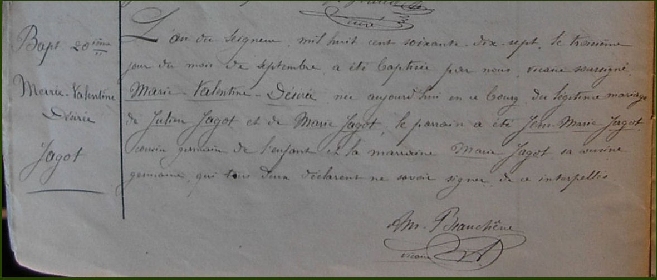 Curé
Bapt 20ième
Marie-Valentine
Désirée
Jagot
L'an du Seigneur, mil huit cent soixante-dix sept, le trentième
jour du mois de septembre a été baptisée par nous, vicaire soussigné
Marie-Valentine-Désirée née aujourd'hui en ce bourg du légitime mariage
de Julien Jagot et de Marie Jagot, le parrain a été Jean-Marie Jagot
cousin germain de l'enfant et la marraine Marie Jagot sa cousine
germaine, qui tous deux déclarent ne savoir signer de ce interpellés
vicaire